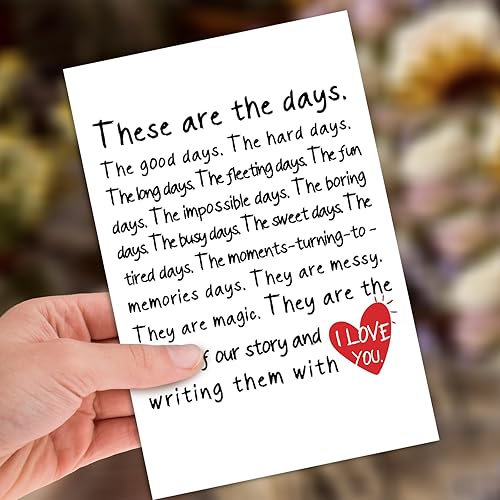 These are the days.
The good days. The hard days.
The long days. The fleeting days. The fun
days. The impossible days. The boring
days. The busy days. The sweet days. The
tired days. The moments-turning-to-
memories days. They are messy.
They are magic. They are the
of our story and I LOVE
YOU.
writing them with